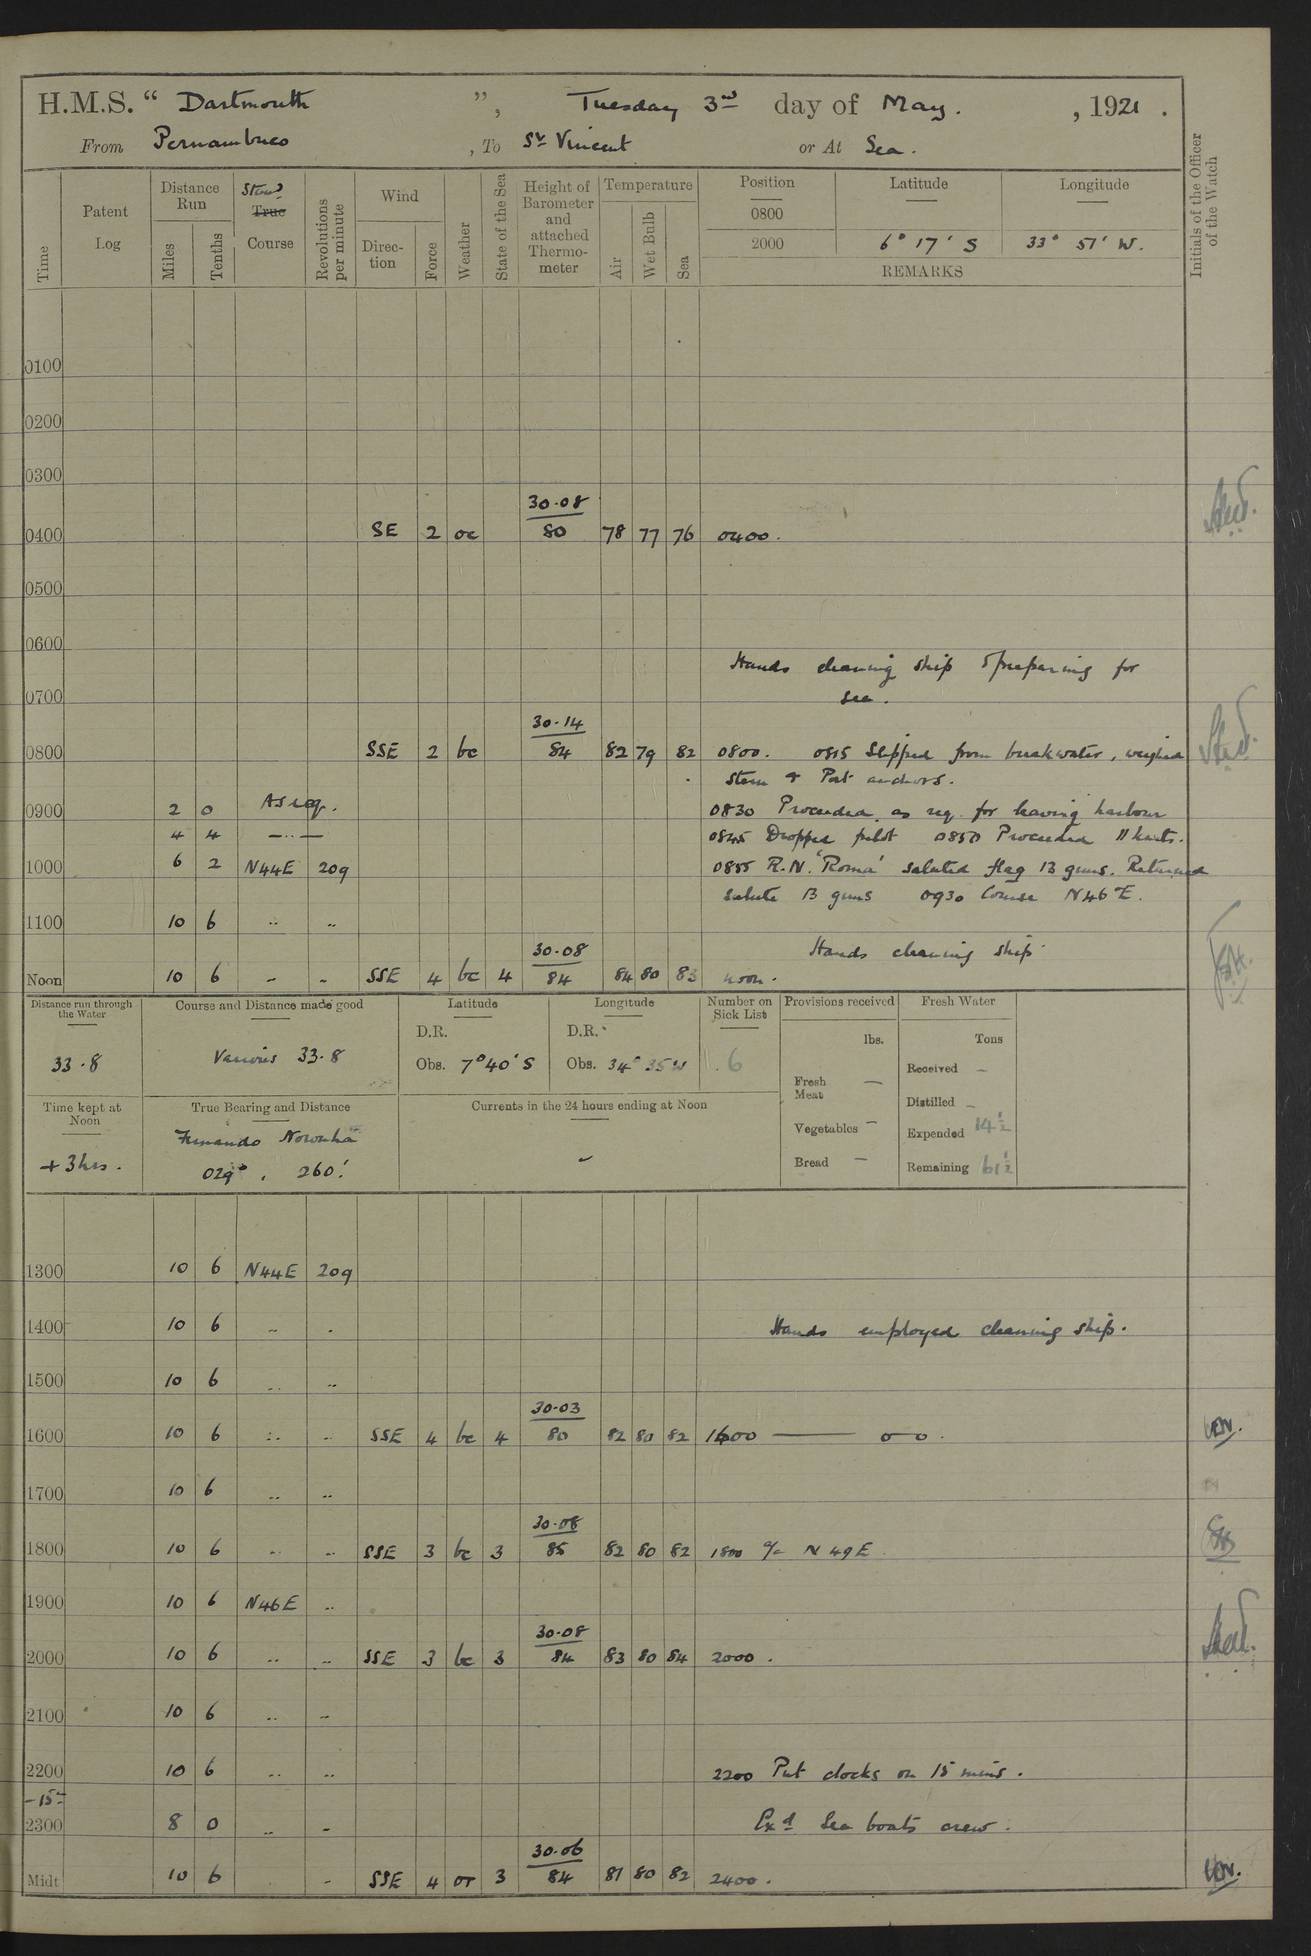 H.M.S. “ Dartmouth ”, Tuesday 3rd day of May. , 1921.
From Pernambuco , To St Vincent or At Sea.
Time
Patent Log
Distance Run
Miles
Tenths
True Course
Revolutions per minute
Wind
Direc-tion
Force
Weather
State of the Sea
Height of Barometer and attached Thermo-meter
Temperature
Air
Wet Bulb
Sea
Position Latitude Longitude
0800
2000 6° 17' S 33° 51' W.
REMARKS
Initials of the Officer of the Watch
0100
0200
0300
30.08
0400 SE 2 oc 80 78 77 76 0400.
0500
0600
Hands cleaning ship & preparing for
0700 sea.
30.14
0800 SSE 2 bc 84 82 79 82 0800. 0815 Slipped from breakwater, weighed
stern & Port anchors.
0900 2 0 As req. 0830 Proceeded as req. for leaving harbour
4 4 — .. — 0845 Dropped pilot 0850 Proceeded 11 knots.
1000 6 2 N44E 209 0855 R.N. 'Roma' saluted flag 13 guns. Returned
salute 13 guns 0930 Course N46E.
1100 10 6 .. ..
30.08 Hands cleaning ship
Noon 10 6 .. .. SSE 4 bc 4 84 84 80 83 noon.
Distance run through the Water
33.8
Course and Distance made good
Various 33.8
Latitude
D.R.
Obs. 7° 40' S
Longitude
D.R.
Obs. 34° 35 W
Number on Sick List
6
Provisions received
lbs.
Fresh Meat —
Vegetables —
Bread —
Fresh Water
Tons
Received —
Distilled —
Expended 14½
Remaining 61½
Time kept at Noon
+ 3 hrs.
True Bearing and Distance
Fernando Noronha
029°, 260'.
Currents in the 24 hours ending at Noon
–
1300 10 6 N44E 209
1400 10 6 .. .. Hands employed cleaning ship.
1500 10 6 .. ..
30.03
1600 10 6 .. .. SSE 4 bc 4 80 82 80 82 1600 —— o—o.
1700 10 6 .. ..
30.08
1800 10 6 .. .. SSE 3 bc 3 85 82 80 82 1800 a/c N 49 E
1900 10 6 N46E ..
30.08
2000 10 6 .. .. SSE 3 bc 3 84 83 80 84 2000.
2100 10 6 .. ..
2200 10 6 .. .. 2200 Put clocks on 15 mins.
-15m
2300 8 0 .. .. Exd Sea boats crew.
30.06
Midt 10 6 .. SSE 4 or 3 84 81 80 82 2400.